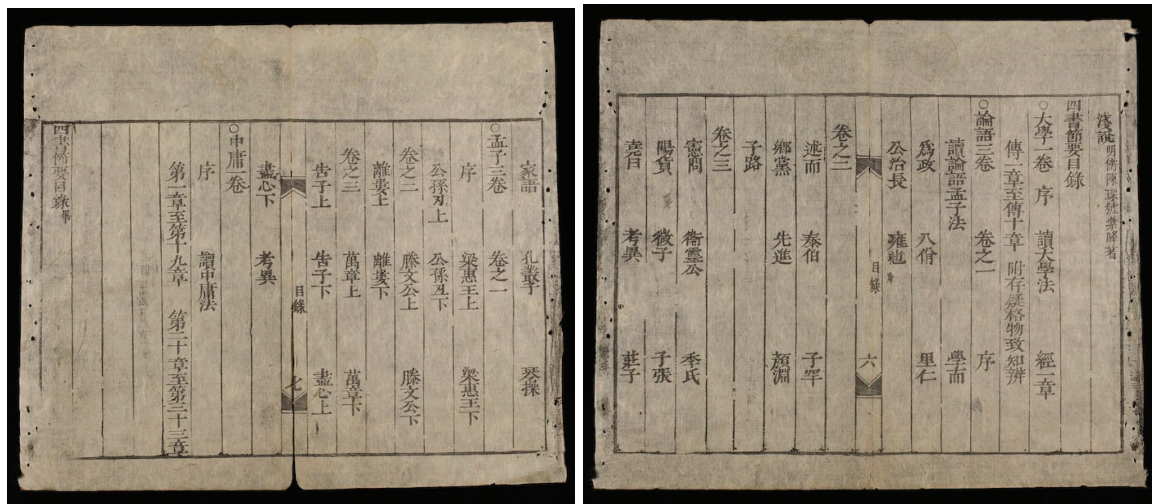 淺說 明儒陳琛號紫峰著
四書節要目錄
○大學一卷 序 讀大學法 經一章
傳一章至傳十章 附存疑格物致知辨
○論語三卷 卷之一 序
讀論語孟子法 學而
爲政 八佾 里仁
公冶長 雍也
目錄 六
卷之二
述而 泰伯 子罕
鄉黨 先進 顏淵
子路
卷之三
憲問 衛靈公 季氏
陽貨 微子 子張
堯曰 考異 莊子
家語 孔叢子 琴操
○孟子三卷 卷之一
序 梁惠王上 梁惠王下
公孫丑上 公孫丑下
卷之二 滕文公上 滕文公下
離婁上 離婁下
卷之三 萬章上 萬章下
告子上 告子下 盡心上
目錄 七
盡心下 考異
○中庸一卷
序 讀中庸法
第一章至第十九章 第二十章至第三十三章
四書節要目錄畢